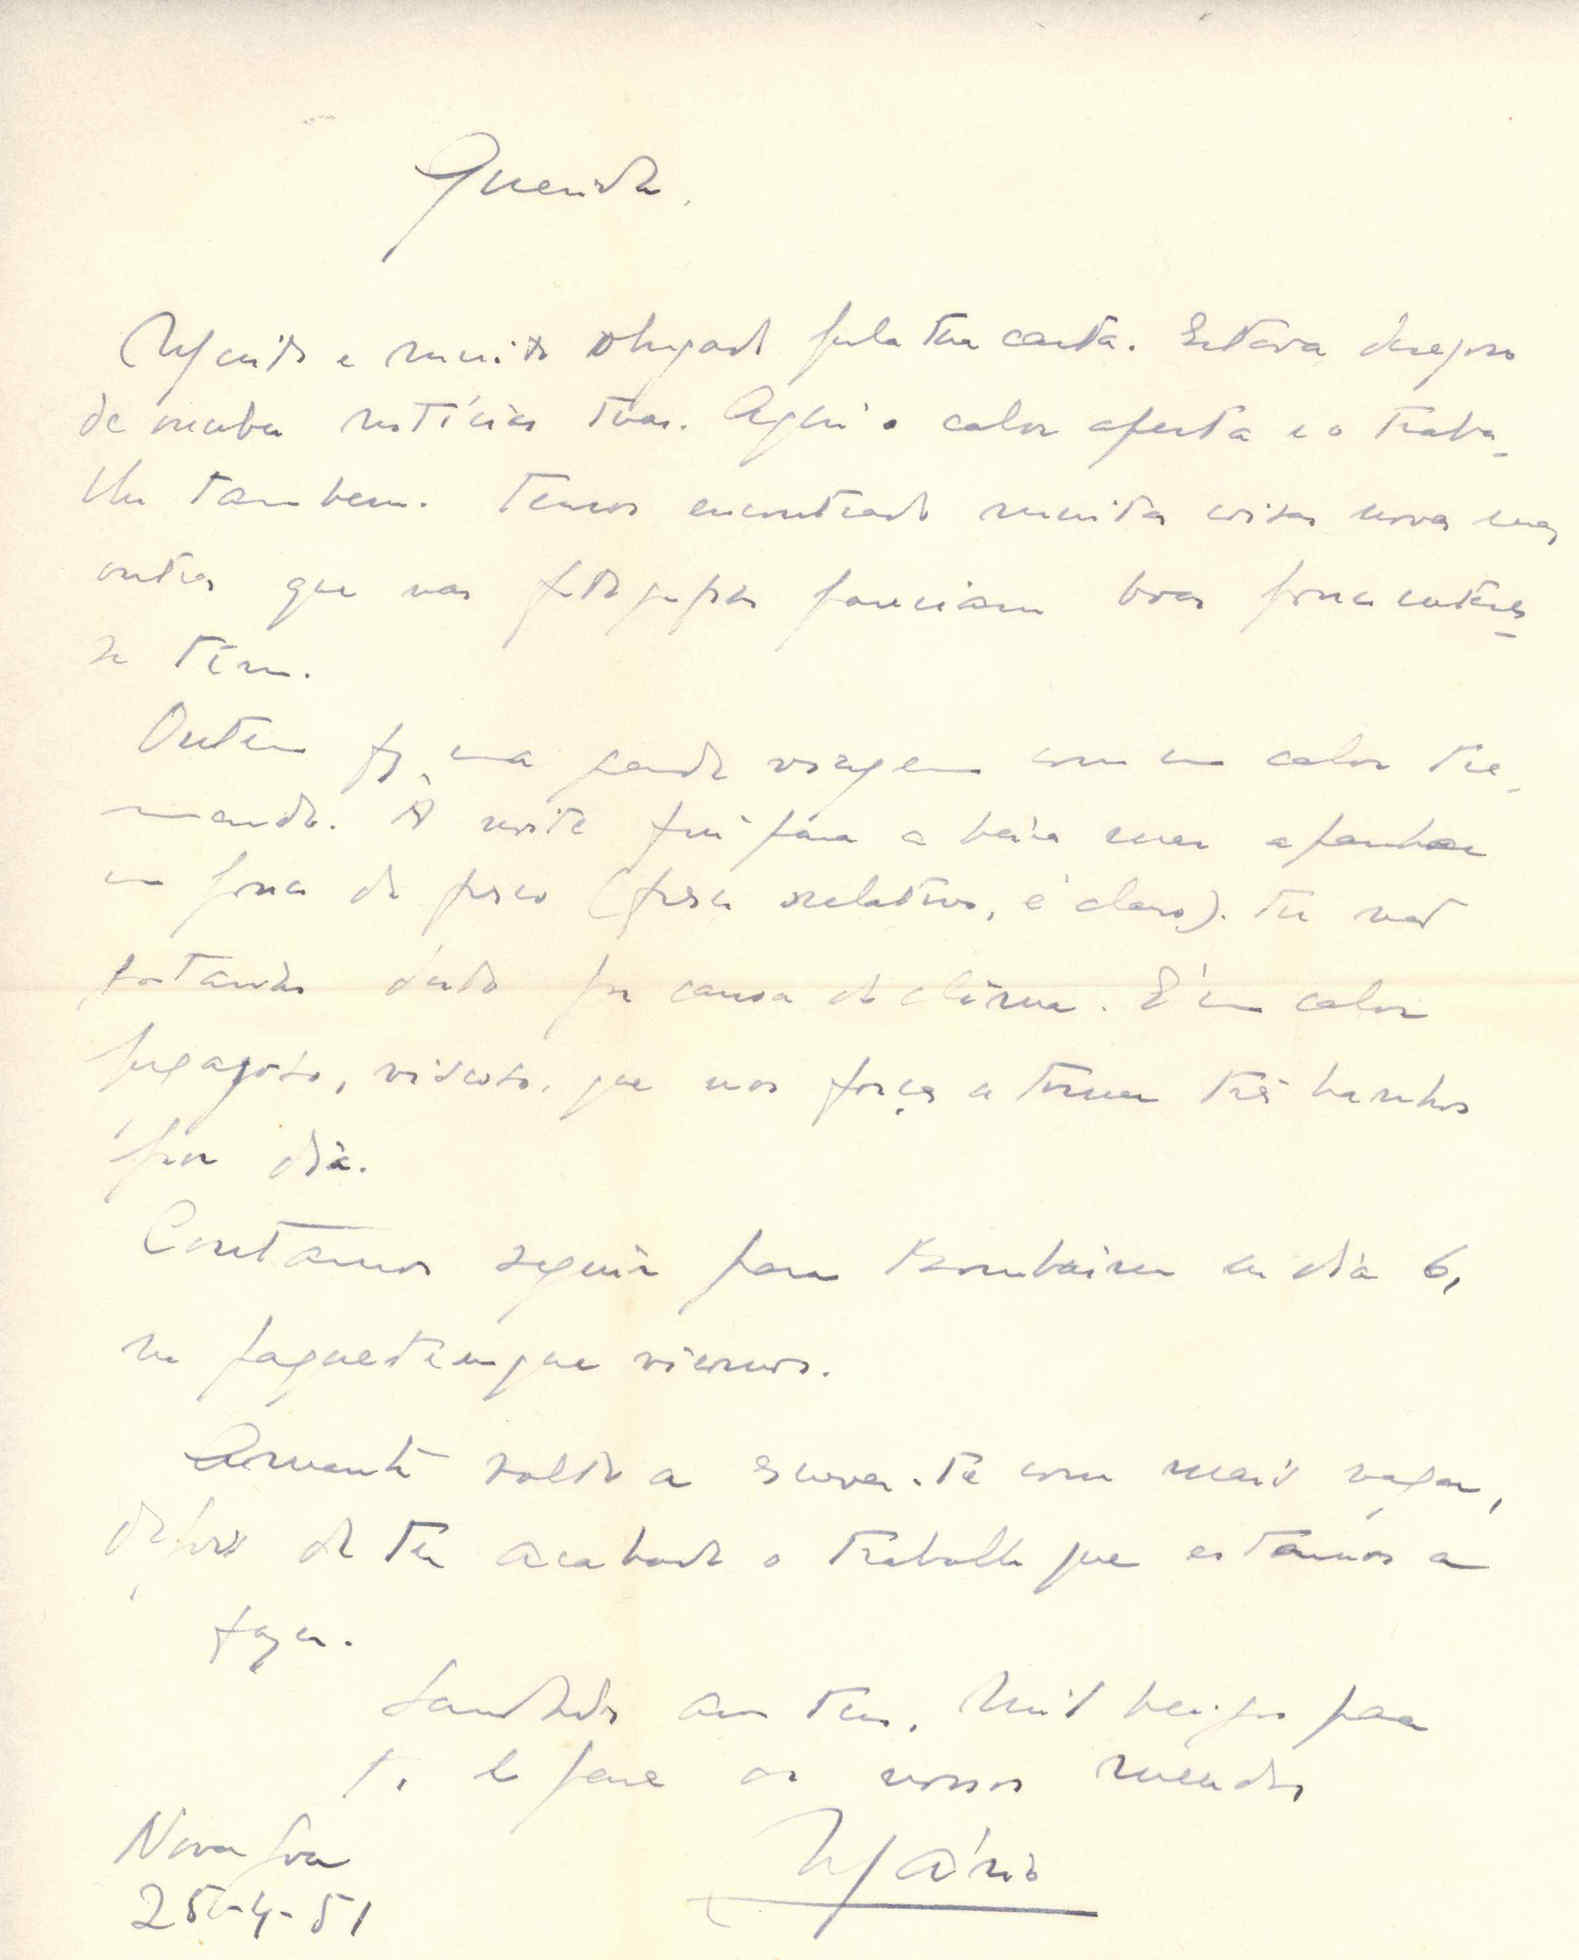 Querida,
Muito e muito obrigado pela tua carta. Estava desejoso
de receber notícias tuas. Aqui o calor aperta e o traba-
lho tambem. Temos encontrado muitas coisas novas mas
outras que nas fotografias pareciam boas pouco interes-
se têm.
Ontem fiz uma grande viagem com um calor tre-
mendo. À noite fui para a beira mar apanhar
um pouco de fresco (fresco relativo, é claro). Tu não
gostarias disto por causa do clima. É um calor
pegajoso, viscoso, que nos força a tomar três banhos
por dia.
Contamos seguir para Bombaim em dia 6,
no paquete em que viemos.
Amanhã volto a escrever-te com mais vagar,
depois de ter acabado o trabalho que estamos a
fazer.
Saudades aos teus. Mil beijos para
ti e para os nossos meudos
Mário
Nova Goa
25-4-51